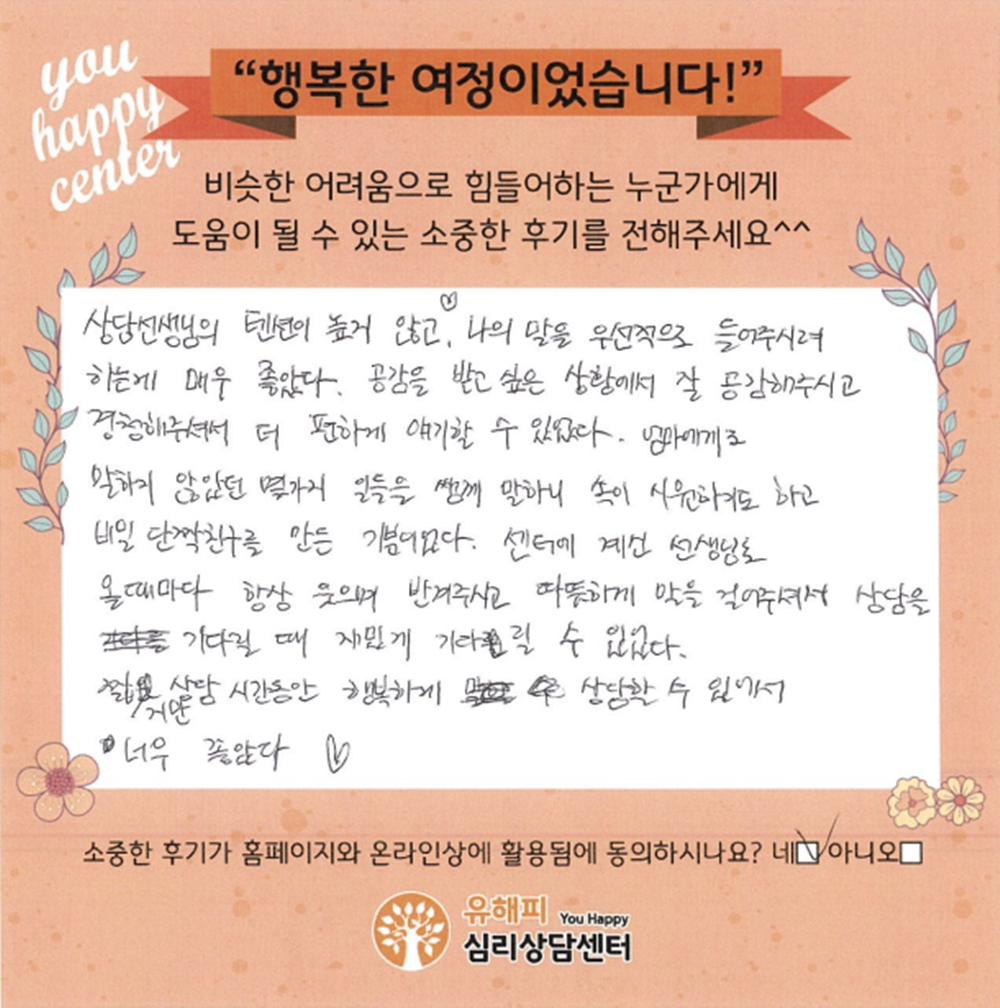 you
happy
center
“행복한 여정이었습니다!”
비슷한 어려움으로 힘들어하는 누군가에게
도움이 될 수 있는 소중한 후기를 전해주세요^^
상담선생님의 텐션이 높거 않고, 나의 말을 우선적으로 들어주시려
하는게 매우 좋았다. 공감을 받고 싶은 상황에서 잘 공감해주시고
경청해주셔서 더 편하게 얘기할 수 있었다. 엄마에게도
말하지 않았던 몇가지 일들을 쌤께 말하니 속이 시원하기도 하고
비밀 단짝친구를 만든 기분이었다. 센터에 계신 선생님도
올때마다 항상 웃으며 반겨주시고 따뜻하게 말을 걸어주셔서 상담을
기다릴 때 재밌게 기다릴 수 있었다.
짧지만 상담 시간동안 행복하게 상담할 수 있어서
너무 좋았다 ♡
소중한 후기가 홈페이지와 온라인상에 활용됨에 동의하시나요? 네☑ 아니오□
유해피 You Happy
심리상담센터